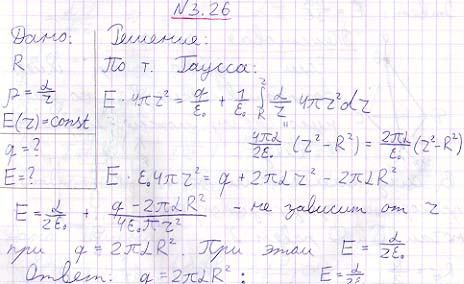 №3.26
Дано: Решение:
R По т. Гаусса:
ρ = α/r E · 4πr² = q/ε₀ + 1/ε₀ ∫_R^r α/r 4πr² dr
E(r) = const 4πα/2ε₀ (r² - R²) = 2πα/ε₀ (r² - R²)
q = ?
E = ? E · ε₀ 4πr² = q + 2παr² - 2παR²
E = α/2ε₀ + (q - 2παR²)/(4ε₀πr²) - не зависит от r
при q = 2παR². При этом E = α/2ε₀
Ответ: q = 2παR²; E = α/2ε₀